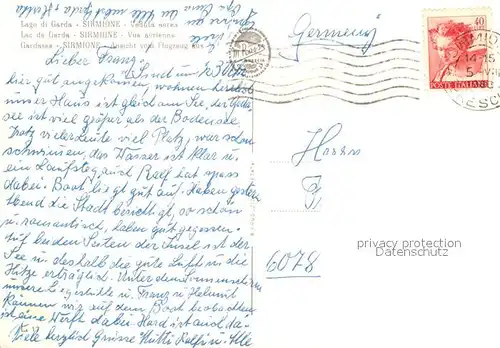 Lago di Garda - SIRMIONE - Veduta aerea
Lac de Garda - SIRMIONE - Vue aérienne
Gardasee - SIRMIONE - Ansicht vom Flugzeug aus
Lieber Franz,
Sind um 2 30 Uhr
hier gut angekommen, wohnen herrlich
unser Haus ist gleich am See, der Garda
see ist viel größer als der Bodensee
Trotz vieler Leute viel Platz, war schon
schwimmen, das Wasser ist klar u.
ein Laufsteg, auch Ralf hat spass
dabei. Boot liegt gut auf. Haben gestern
Abend die Stadt besichtigt, so schön
u. romantisch, haben gut gegessen.
Auf beiden Seiten der Insel ist der
See u. deshalb die gute Luft und die
Hitze erträglich. Unter dem Sonnenschirm
unsere Liegestühle u. Franz u. Helmut
können wir auf dem Boot beobachten
ist eine Werft dabei Hard ist auch da
Viele herzlich Grüsse Mutti Ralf u. Alle
Germany
Herrn
6078
40
POSTE ITALIANE
14-15
privacy protection
Datenschutz